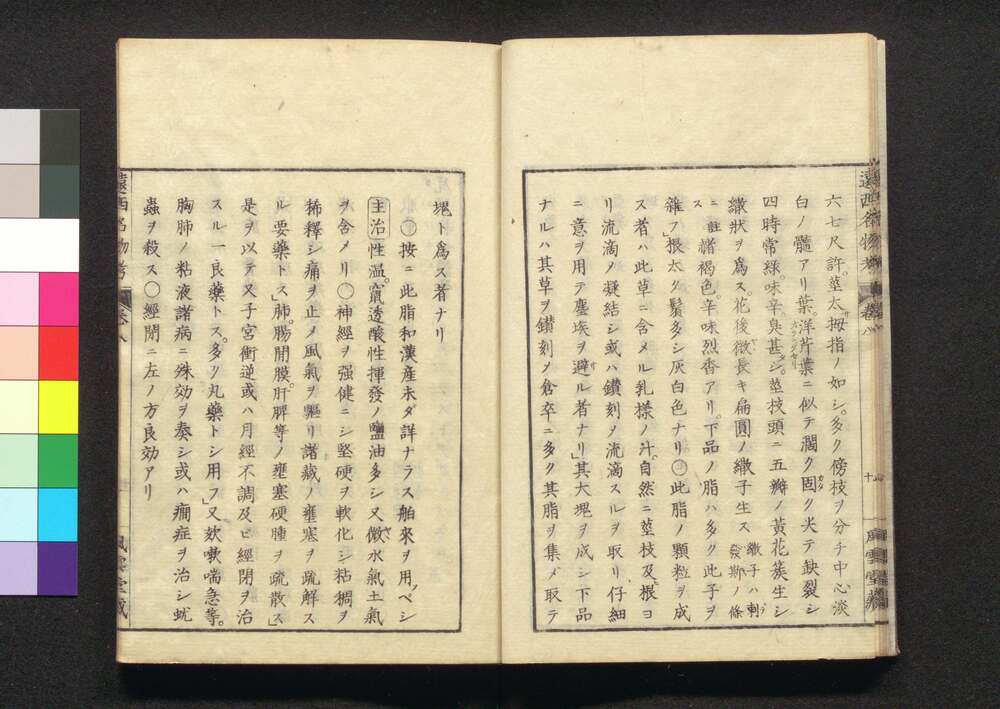 六七尺許。莖太サ拇指ノ如シ。多ク傍枝ヲ分チ中心淡
白ノ髓アリ葉。洋芹葉ニ似テ濶ク固ク尖テ缺裂シ
四時常緑。味辛臭甚シ。莖枝頭ニ五瓣ノ黃花簇生シ
繖狀ヲ爲ス。花後微長キ扁圓ノ繖子生ス 繖子ハ剌
ニ註ス 諸褐色。辛味烈香アリ。下品ノ脂ハ多ク此子ヲ
雜フ」根太ク鬚多シ灰白色ナリ〇此脂ノ顆粒ヲ成
ス者ハ此草ニ含メル乳樣ノ汁自然ニ莖枝及ヒ根ヨ
リ流滴ノ凝結シ或ハ鑚刻ノ流滴スルヲ取リ仔細
ニ意ヲ用テ塵埃ヲ避ル者ナリ」其大塊ヲ成シ下品
ナルハ其草ヲ鑚刻ノ倉卒ニ多ク其脂ヲ集メ取テ
十
塊ト爲ス者ナリ
〇按ニ此脂和漢産未ダ詳ナラス舶來ヲ用ノベシ
主治 性温。竄透酸性揮發ノ鹽油多シ又微水氣土氣
ヲ含メリ〇神經ヲ强健ニシ堅硬ヲ軟化シ粘稠ヲ
稀釋シ痛ヲ止メ風氣ヲ驅リ諸藏ノ壅塞ヲ疏解ス
ル要藥トス」肺。腸間膜。肝脾等ノ壅塞硬腫ヲ疏散ス」
是ヲ以テ又子宮衝逆或ハ月經不調及ビ經閉ヲ治
スル一良藥トス。多ク丸藥トシ用フ」又欬嗽喘急等。
胸肺ノ粘液諸病ニ殊効ヲ奏シ或ハ癇症ヲ治シ蚘
蟲ヲ殺ス〇經閉ニ左ノ方良効アリ
遠西名物考 卷八